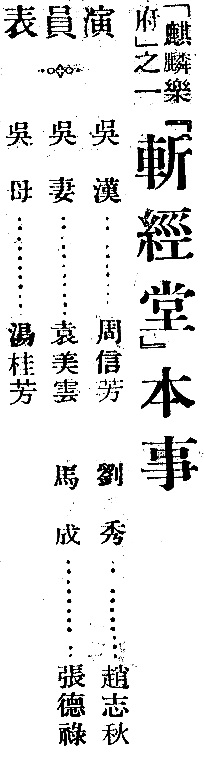 「麒麟樂府」之一
『斬經堂』本事
演員表
吳漢………周信芳
劉秀………趙志秋
吳妻………袁美雲
馬成………張德祿
吳母………湯桂芳